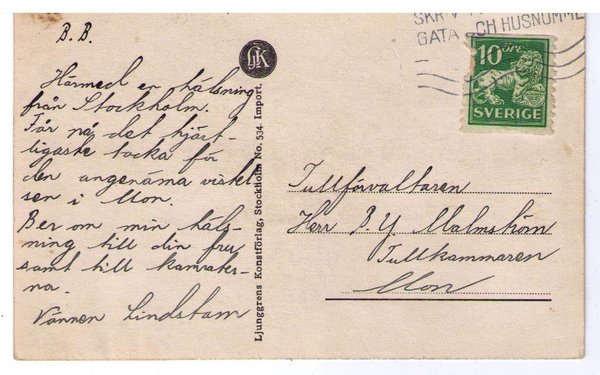 B. B.
Härmed en hälsning
från Stockholm.
Får nu det hjärt-
ligaste tacka för
den angenäma vistel
sen i Mon.
Ber om min häls-
ning till din fru
samt till kamrater-
na.
Vännen Lindstam
LJK
Ljunggrens Konstförlag, Stockholm No. 534. Import.
SKRIV
GATA OCH HUSNUMME
10 ÖRE
SVERIGE
Tullförvaltaren
Herr B. Y. Malmström
Tullkammaren
Mon